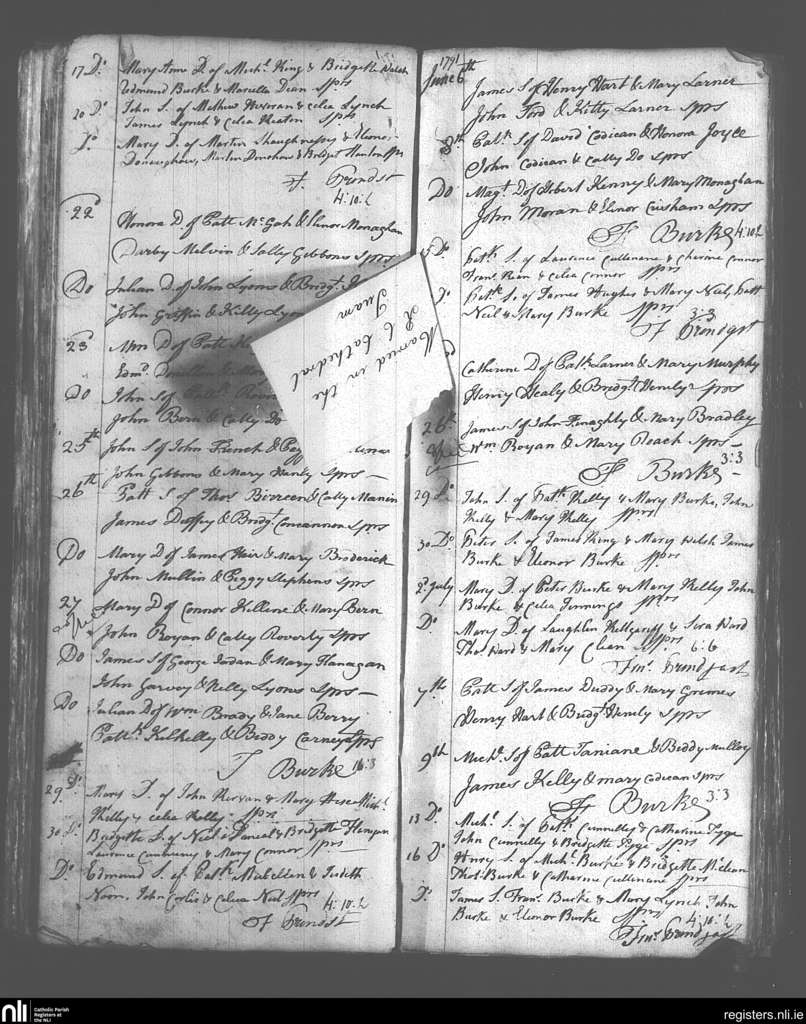 17 Do Mary Anne D. of Michl. King & Bridgette Welsh
Edmund Burke & Mariella Dean Sprs
20 Do John S. of Mathew & Celea Lynch
James Lynch & Celea Sprs
Do Mary D. of Martin Shaughnessy & Elenor
Donaughow, Martin Donohow & Bridget Hanlon Sprs
4:10:2
22d Honora D of Patt Mc Gah & Elinor Monaghan
Darby Melvin & Sally Gibbons Sprs
Do Julian D. of John Lyons & Bridgt.
John Griffin & Kitty Lyons
23d Ann D of Patt
Edmd.
Do John S of
John Bern & Catty Do
25th John S of John French & Peggy
John Gibbons & Mary Hanly Sprs –
26th Patt S of Thos Birreen & Catty Manin
James Duffey & Bridgt. Concannon Sprs
Do Mary D of James Heir & Mary Broderick
John Mullin & Peggy Stephens Sprs
27 Mary D of Connor Killene & Mary Bern
John Royan & Catty Roverty Sprs
Do James S of George Jordan & Mary Flanagan
John Garvey & Nelly Lyons Sprs –
Do Julian D of Wm Brady & Jane Berry
Patt. Kilkelly & Biddy Carney Sprs
F Burke 16:3
29 Do Mary D. of John Kirwan & Mary Michl.
Kelly & Celea Kelly Sprs
30 Do Bridgette D. of & Bridgette Flanegan
Laurence & Mary Connor Sprs
Do Edmund S. of Patk. Mullen & Judith
Noon, John Corlis & Celea Neil Sprs
4:10:2
Married in the
R C Cathedral
Tuam
1791
June 6th
James S of Henry Hart & Mary Larner
John Ford & Kitty Larner Sprs
8th Patk. S of David Codican & Honora Joyce
John Codican & Catty Do Sprs
Do Magt. D of Robert Kenny & Mary Monaghan
John Moran & Elenor Cuisham Sprs
F Burke 4:10:2
Patk. S. of Laurence Cullenane & Cherine Connor
Frans. Rian & Celea Connor Sprs
Patk. S. of James Hughes & Mary Neil, Patt
Neil & Mary Burke Sprs
3:3
Catherine D of Patk. Larner & Mary Murphy
Henry Healy & Bridgt. Henely Sprs
26th James S of John Fenaghty & Mary Bradley
Wm Royan & Mary Roach Sprs –
3:3
F Burke –
29 Do John S. of Patk. Kelly & Mary Burke, John
Kelly & Mary Kelly Sprs
30 Do Peter S. of James King & Mary Welsh James
Burke & Eleonor Burke Sprs
2d July Mary D. of Peter Burke & Mary Kelly John
Burke & Celea Jennings Sprs
Do Mary D. of Laughlen Killgariff & Sera Ward
Thos. Ward & Mary Clean Sprs
6:6
7th Patt S of James Duddy & Mary Grimes
Henry Hart & Bridgt. Henely Sprs
9th Michl. S of Patt Taniane & Biddy Mulloy
James Kelly & Mary Codican Sprs
F Burke 3:3
13 Do Michl. S. of Patk. Cunnelly & Catherine Tyge
John Cunnelly & Bridgette Tyge Sprs
16 Do Henry S. of Michl. Burke & Bridgette Mclean
Thos. Burke & Catharine Cullenane Sprs
Do James S. Frans. Burke & Mary Lynch John
Burke & Eleonor Burke Sprs
4:10:2
nli
Catholic Parish
Registers at
the NLI
registers.nli.ie